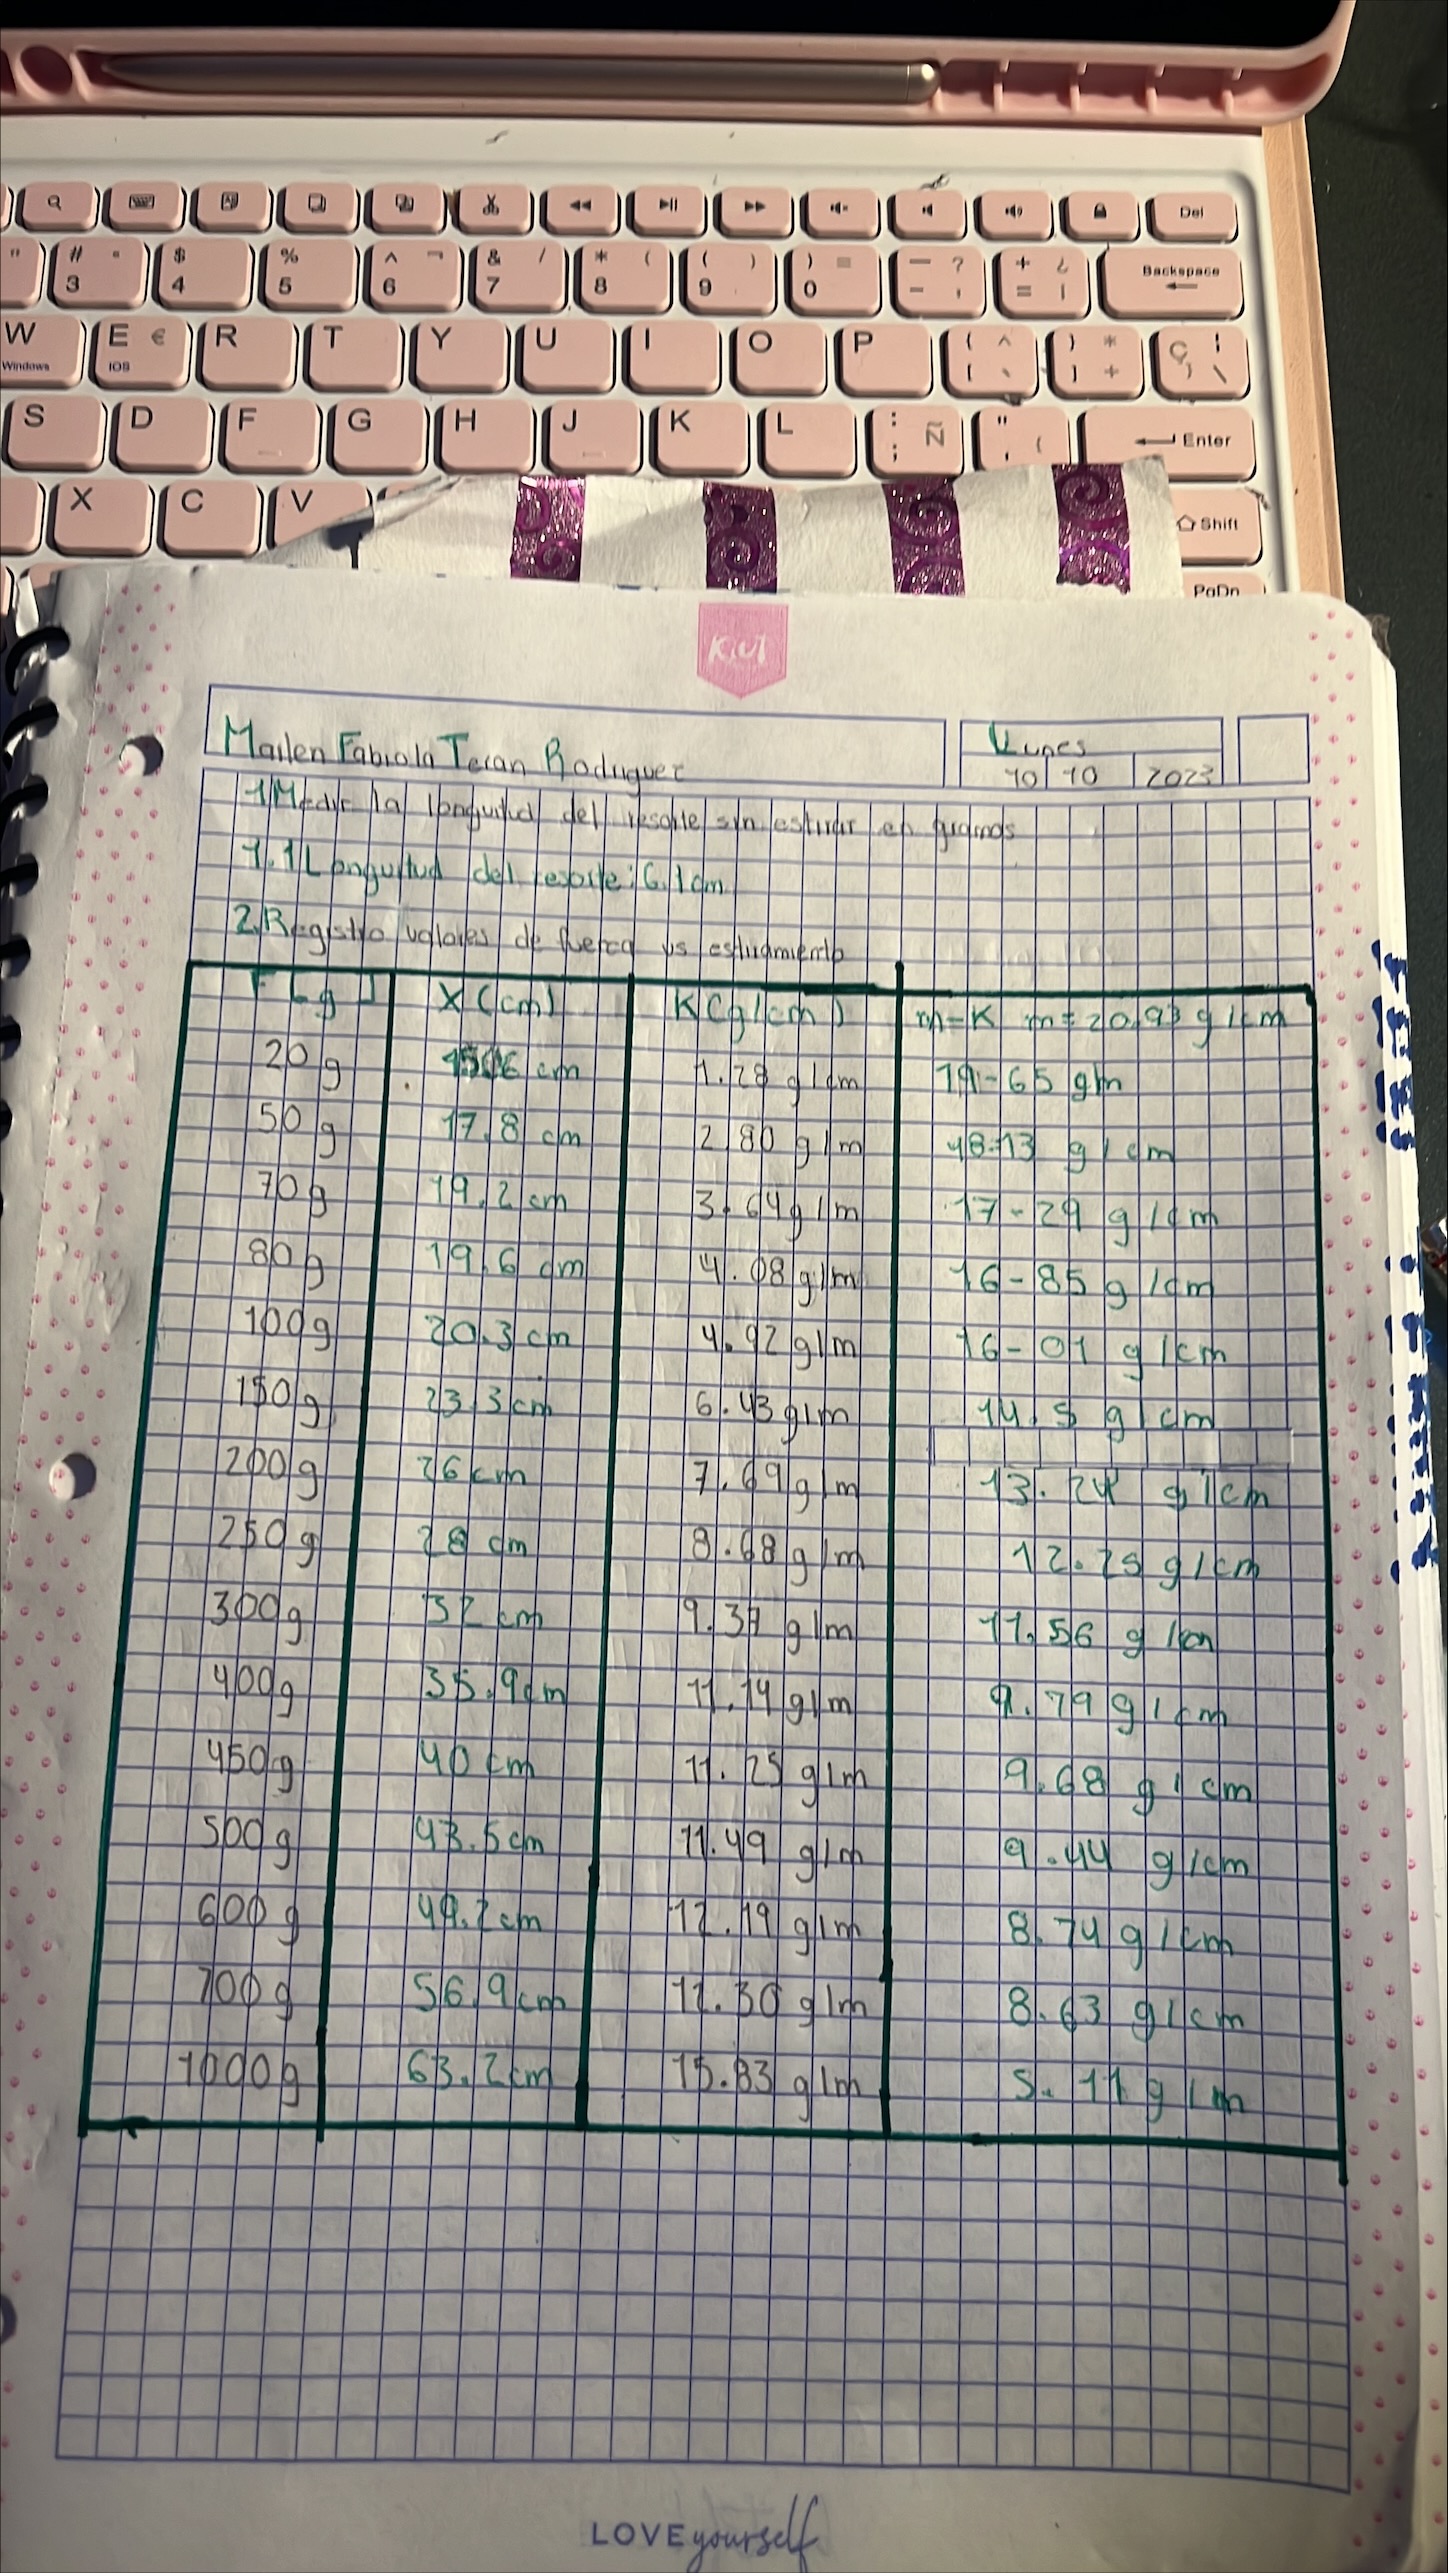 Del
" # • 3 $ 4 % 5 ^ ¬ 6 & / 7 * ( 8 ( ) 9 ) = 0 — ? - ' + ¿ = ¡ Backspace
W Windows E € IOS R T Y U I O P { ^ [ ` } * ] + Ç
S D F G H J K L : ; Ñ " ' Enter
X C V Shift
PgDn
Kiut
Mailen Fabiola Teran Rodriguez
Lunes
10 10 2023
1 Medir la longuitud del resorte sin estirar en gramos
1.1 Longuitud del resorte: 6.1cm
2. Registro valores de fuerza vs estiramiento
F [g] X (cm) K(g/cm) m-K m=20.93 g/cm
20g cm 1.28 g/cm 19-65 g/m
50g 17.8 cm 2.80 g/m 18.13 g/cm
70g 19.2 cm 3.64 g/m 17-29 g/cm
80g 19.6 cm 4.08 g/m 16-85 g/cm
100g 20.3 cm 4.92 g/m 16-01 g/cm
150g 23.3 cm 6.43 g/m 14.5 g/cm
200g 26 cm 7.69 g/m 13.24 g/cm
250g 28 cm 8.68 g/m 12.25 g/cm
300g 32 cm 9.37 g/m 11.56 g/cm
400g 35.9cm 11.14 g/m 9.79 g/cm
450g 40 cm 11.25 g/m 9.68 g/cm
500g 43.5cm 11.49 g/m 9.44 g/cm
600g 49.2cm 12.19 g/m 8.74 g/cm
700g 56.9cm 12.30 g/m 8.63 g/cm
1000g 63.2cm 15.83 g/m 5.11 g/m
LOVE yourself